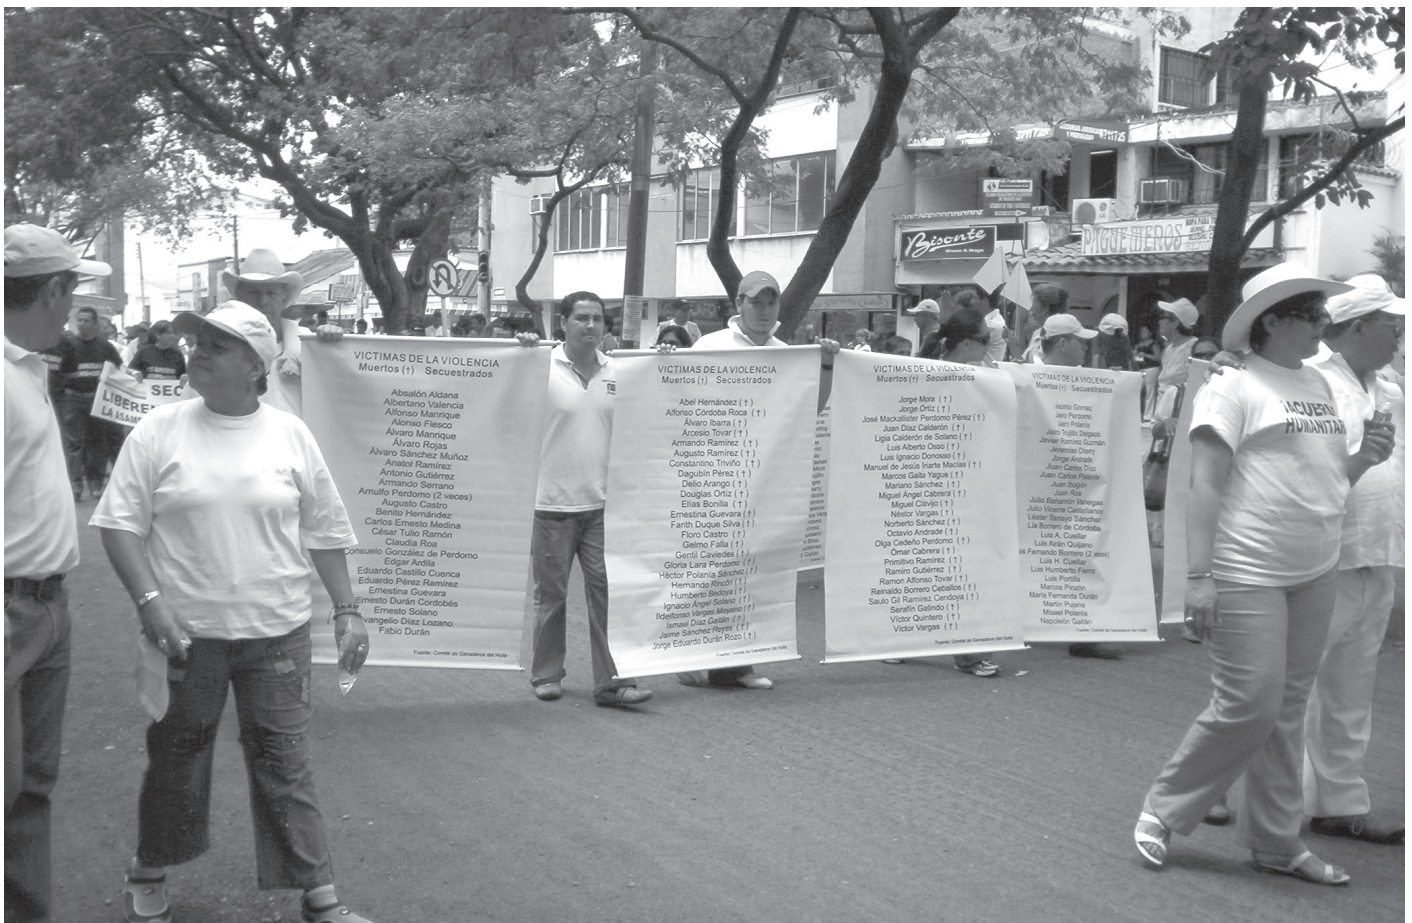 VICTIMAS DE LA VIOLENCIA
Muertos (†) Secuestrados
Absalón Aldana
Albertano Valencia
Alfonso Manrique
Alonso Fiesco
Álvaro Manrique
Álvaro Rojas
Álvaro Sánchez Muñoz
Anatol Ramírez
Antonio Gutiérrez
Armando Serrano
Arnulfo Perdomo (2 veces)
Augusto Castro
Benito Hernández
Carlos Ernesto Medina
César Tulio Ramón
Claudia Roa
Consuelo González de Perdomo
Edgar Ardila
Eduardo Castillo Cuenca
Eduardo Pérez Ramírez
Ernestina Guevara
Ernesto Durán Cordobés
Ernesto Solano
Evangelio Díaz Lozano
Fabio Durán
Fuente: Comité de Ganaderos del Huila
VICTIMAS DE LA VIOLENCIA
Muertos (†) Secuestrados
Abel Hernández (†)
Alfonso Córdoba Roca (†)
Álvaro Ibarra (†)
Arcesio Tovar (†)
Armando Ramírez (†)
Augusto Ramírez (†)
Constantino Triviño (†)
Dagubín Pérez (†)
Delio Arango (†)
Douglas Ortíz (†)
Elías Bonilla (†)
Ernestina Guevara (†)
Farith Duque Silva (†)
Floro Castro (†)
Gelmo Falla (†)
Gentil Caviedes (†)
Gloria Lara Perdomo (†)
Héctor Polanía Sánchez (†)
Hernando Rincón (†)
Humberto Bedoya (†)
Ignacio Ángel Solano (†)
Ildelfonso Vargas Moyano (†)
Ismael Díaz Gaitán (†)
Jaime Sánchez Reyes (†)
Jorge Eduardo Durán Rozo (†)
Fuente: Comité de Ganaderos del Huila
VICTIMAS DE LA VIOLENCIA
Muertos (†) Secuestrados
Jorge Mora (†)
Jorge Ortíz (†)
José Mackallister Perdomo Pérez (†)
Juan Díaz Calderón (†)
Ligia Calderón de Solano (†)
Luis Alberto Osso (†)
Luis Ignacio Donosso (†)
Manuel de Jesús Iriarte Macías (†)
Marcos Gaita Yague (†)
Mariano Sánchez (†)
Miguel Ángel Cabrera (†)
Miguel Clavijo (†)
Néstor Vargas (†)
Norberto Sánchez (†)
Octavio Andrade (†)
Olga Cedeño Perdomo (†)
Ómar Cabrera (†)
Primitivo Ramírez (†)
Ramiro Gutiérrez (†)
Ramon Alfonso Tovar (†)
Reinaldo Borrero Ceballos (†)
Saulo Gil Ramírez Candoya (†)
Serafín Galindo (†)
Víctor Quintero (†)
Víctor Vargas (†)
Fuente: Comité de Ganaderos del Huila
VICTIMAS DE LA VIOLENCIA
Muertos (†) Secuestrados
Gómez
Jairo Perdomo
Jairo Polanía
Jairo Trujillo Delgado
Javier Ramírez Guzmán
Jeremías Cherry
Jorge Andrade
Juan Carlos Díaz
Juan Carlos Polanía
Juan Ibagón
Juan Roa
Julio Bahamón Vanegas
Julio Vicente Castellanos
Léster Tamayo Sánchez
Lía Borrero de Córdoba
Luis A. Cuellar
Luis Airán Quijano
Fernando Borrero (2 veces)
Luis H. Cuellar
Luis Humberto Fierro
Luis Portilla
Marcos Pinzón
María Fernanda Durán
Martín Pujana
Misael Polanía
Napoleón Gaitán
Fuente: Comité de Ganaderos del Huila
SEC
LIBERE
LA ASAM
Bisonte
HUMANITAR